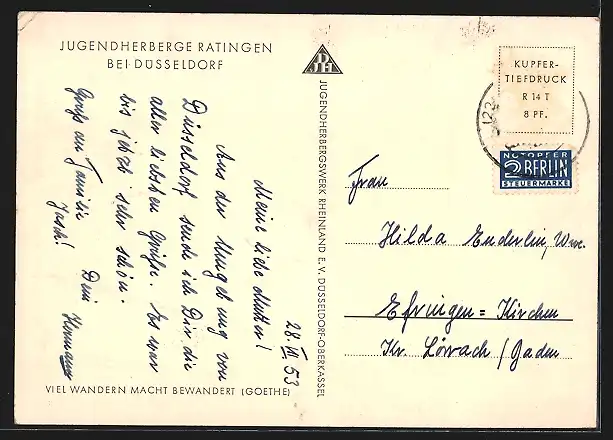 JUGENDHERBERGE RATINGEN
BEI DÜSSELDORF
28. VII 53
Meine liebe Mutter!
Aus der Umgebung von
Düsseldorf sende ich Dir die
aller liebsten Grüße. Es war
bis jetzt sehr schön.
Dein Hermann
Gruß an Familie
VIEL WANDERN MACHT BEWANDERT (GOETHE)
DJH
JUGENDHERBERGSWERK RHEINLAND E. V. DÜSSELDORF-OBERKASSEL
KUPFER-
TIEFDRUCK
R 14 T
8 PF.
NOTOPFER
2 BERLIN
STEUERMARKE
Frau
Hilda Enderlin, Wwe.
Efringen = Kirchen
Kr. Lörrach / Baden